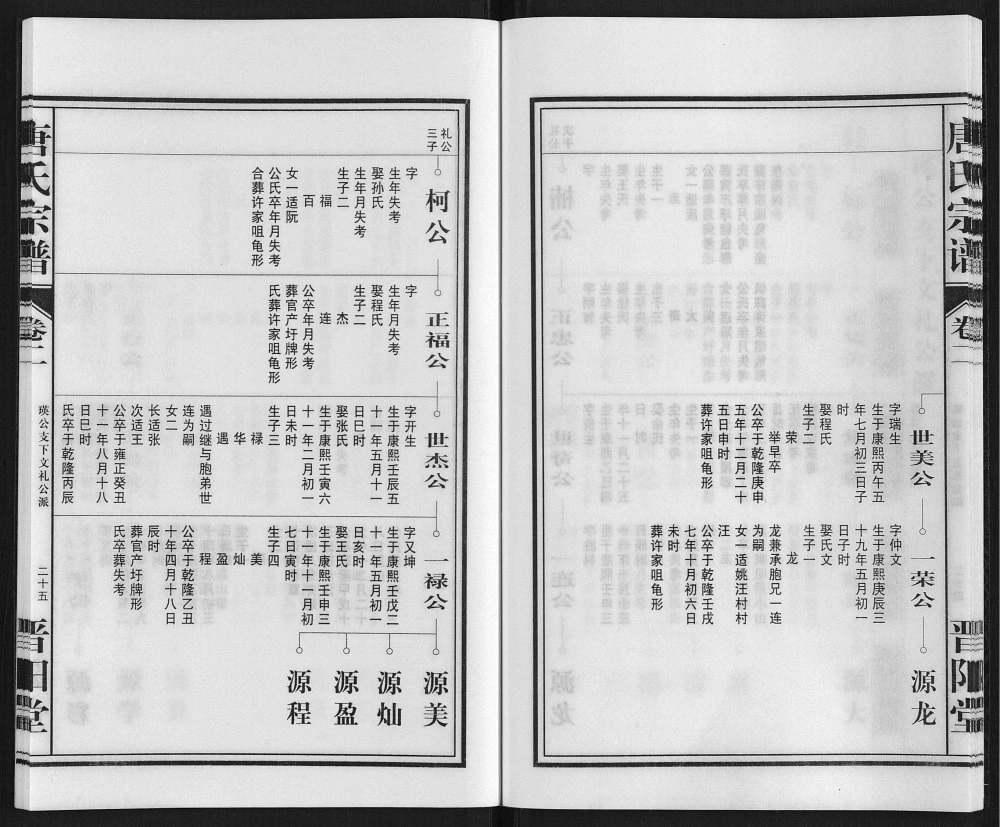 唐氏宗谱
卷二
晋阳堂
世美公
字瑞生
生于康熙丙午五
年七月初三日子
时
娶程氏
生子二
荣
举早卒
公卒于乾隆庚申
五年十二月二十
五日申时
葬许家咀龟形
一荣公
字仲文
生于康熙庚辰三
十九年五月初一
日子时
娶氏文
生子一
龙
龙兼承胞兄一连
为嗣
女一适姚汪村村
汪
公卒于乾隆壬戌
七年十月初六日
未时
葬许家咀龟形
源龙
礼公
三子
柯公
字
生年失考
娶孙氏
生年月失考
生子二
福
百
女一适阮
公氏卒年月失考
合葬许家咀龟形
正福公
字
生年月失考
娶程氏
生子二
杰
连
公卒年月失考
葬官产圩牌形
氏葬许家咀龟形
世杰公
字开生
生于康熙壬辰五
十一年五月十一
日巳时
娶张氏
生于康熙壬寅六
十一年二月初二
日未时
生子三
禄
华
遇
遇过继与胞弟世
连为嗣
女二
长适张
次适王
公卒于雍正癸丑
十一年八月十八
日巳时
氏卒于乾隆丙辰
一禄公
字又坤
生于康熙壬戊二
十一年五月初一
日亥时
娶王氏
生于康熙壬申三
十一年十一月初
七日寅时
生子四
美
灿
盈
程
公卒于乾隆乙丑
十年四月十八日
辰时
葬官产圩牌形
氏卒葬失考
源美
源灿
源盈
源程
唐氏宗谱
卷二
瑛公支下文礼公派
二十五
晋阳堂